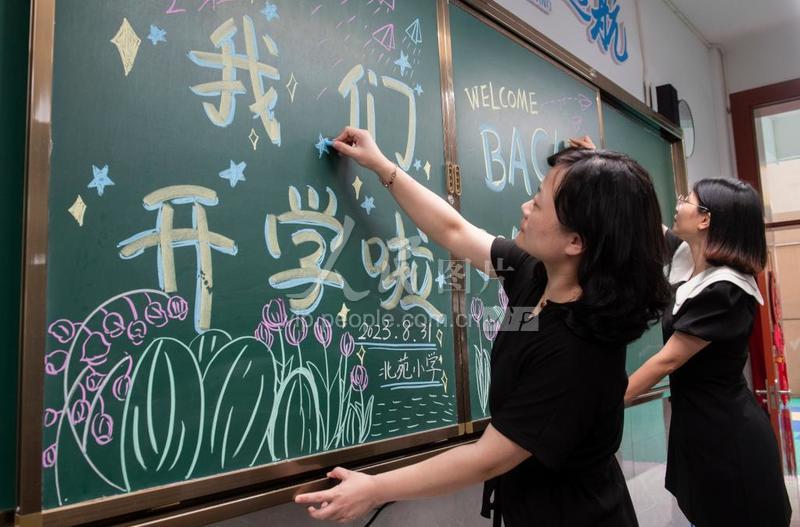 我们
开学啦
2023.8.31
北苑小学
WELCOME
BACK
航
人民图片
people.com.cn